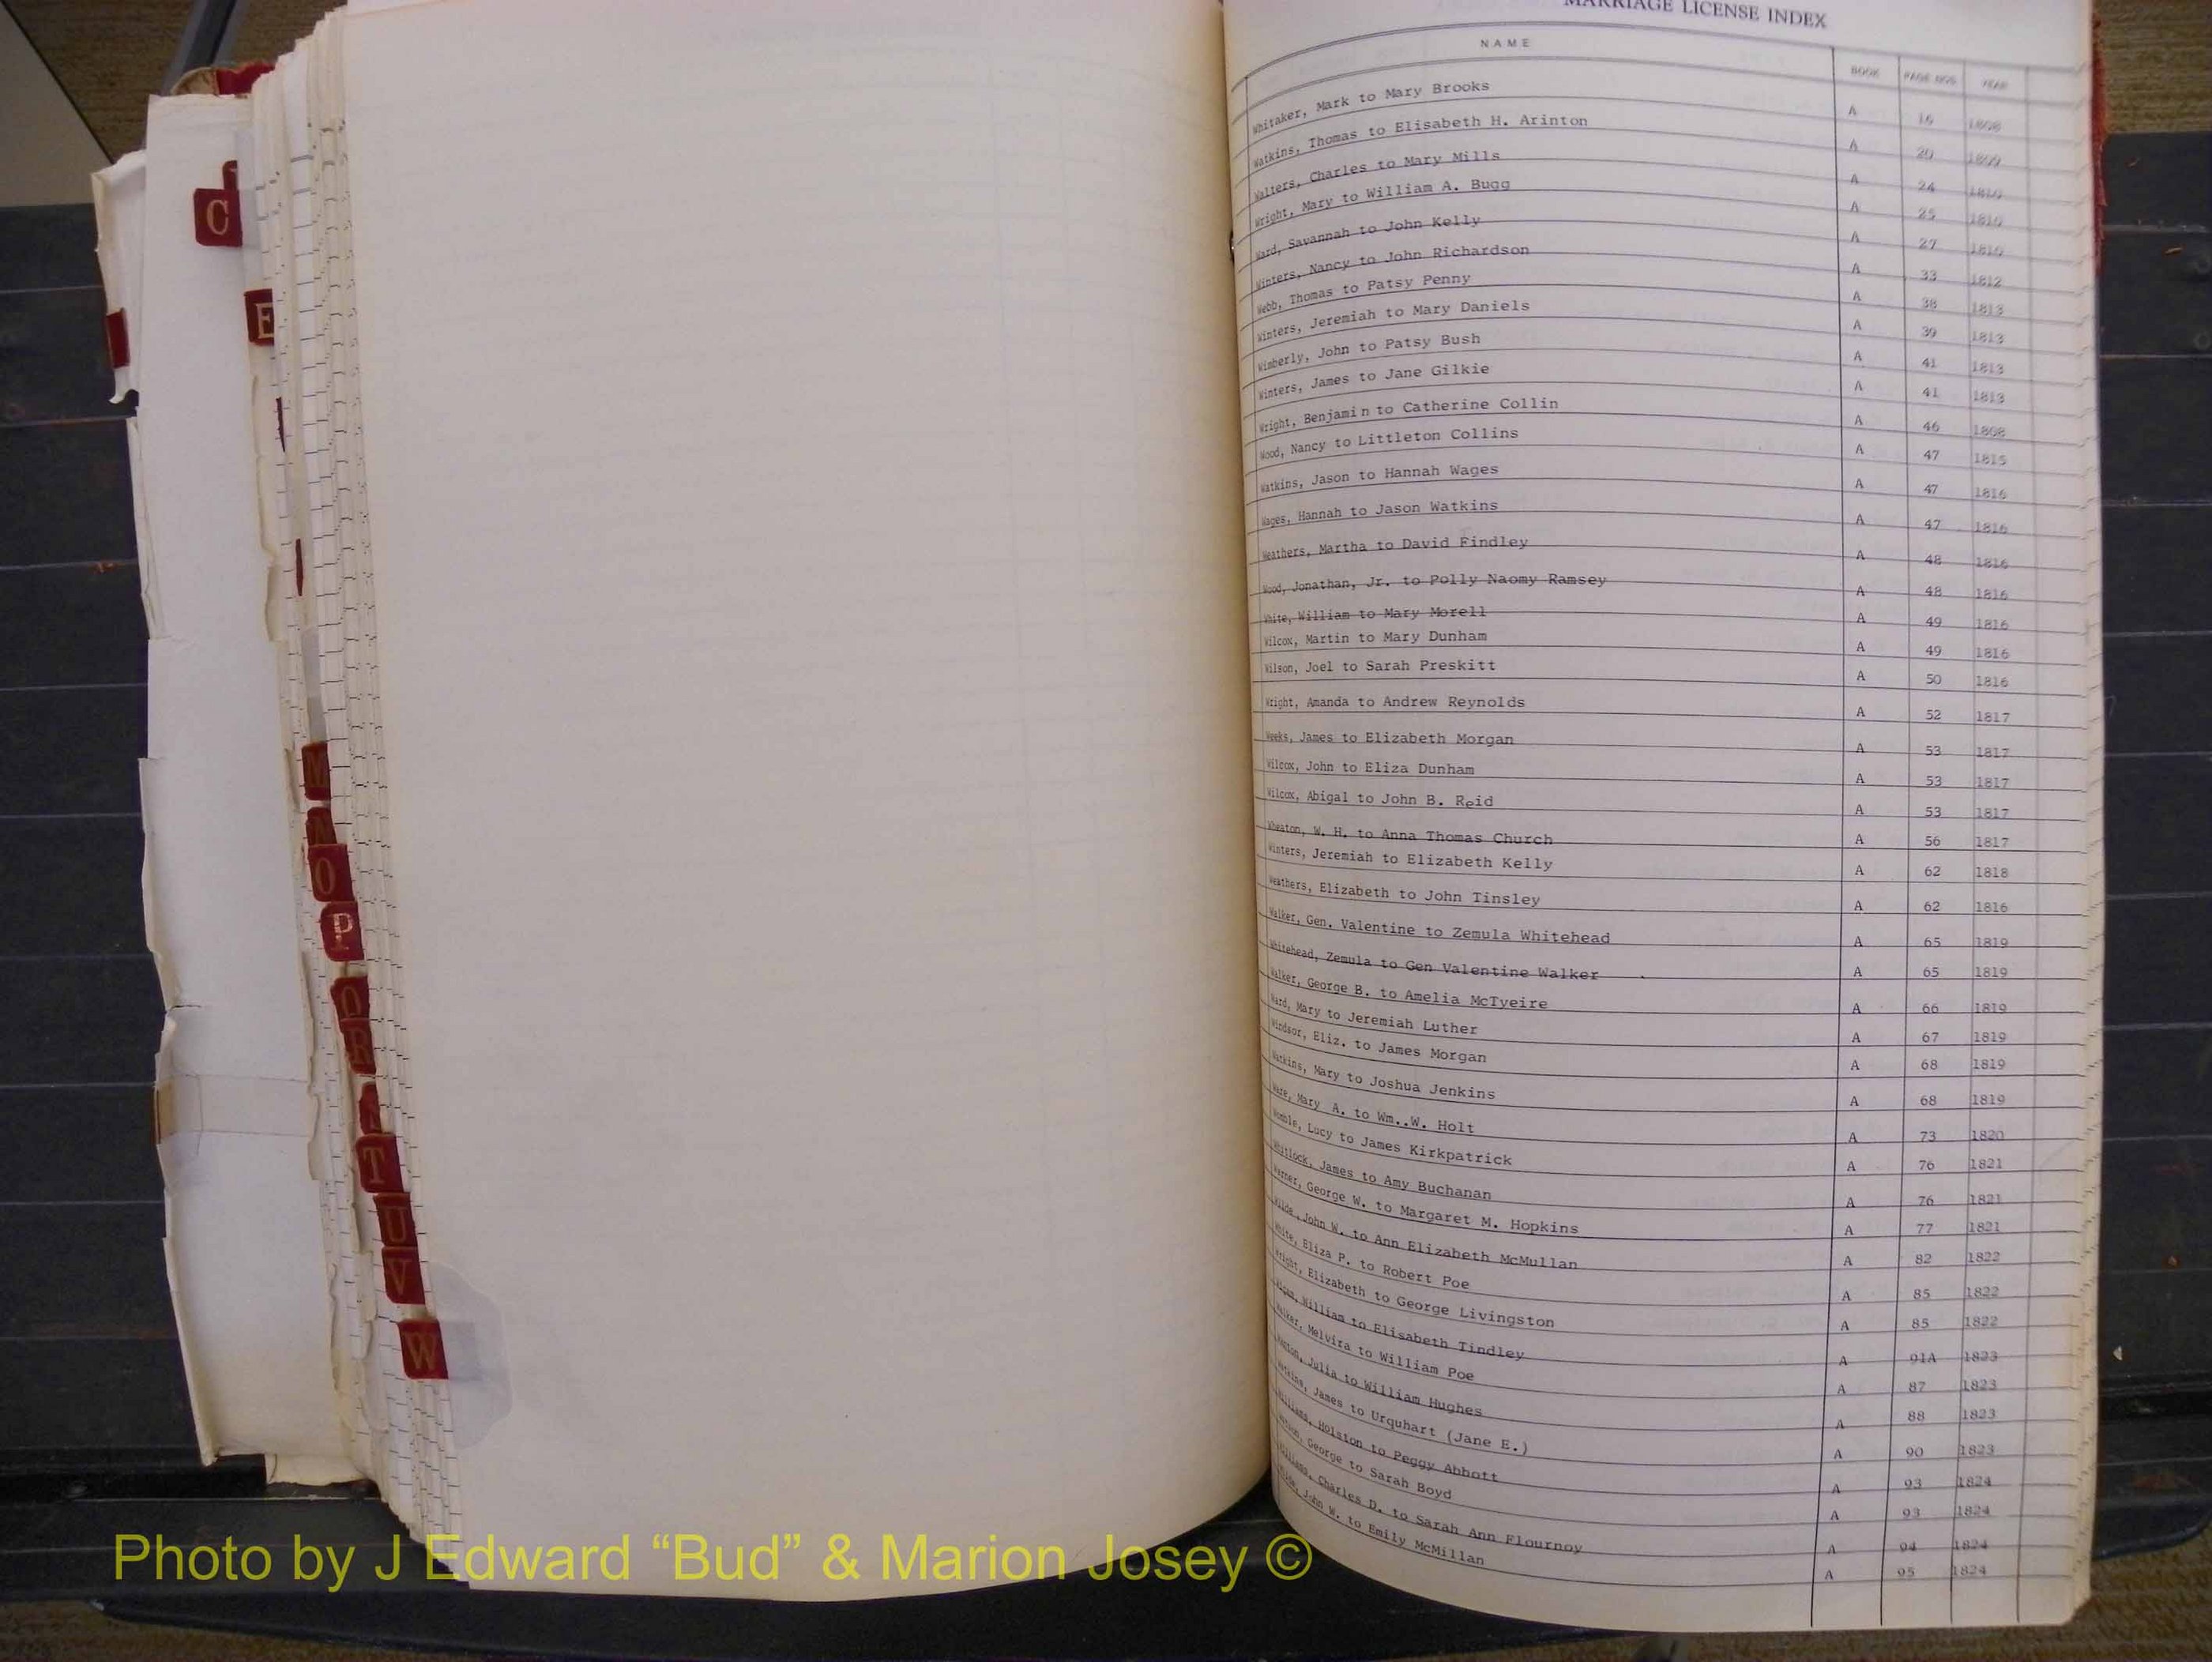 C
E
M
N
O
P
Q
R
S
T
U
V
W
MARRIAGE LICENSE INDEX
NAME BOOK PAGE NOS YEAR
Whitaker, Mark to Mary Brooks A 16 1808
Watkins, Thomas to Elisabeth H. Arinton A 20 1809
Walters, Charles to Mary Mills A 24 1810
Wright, Mary to William A. Bugg A 25 1810
Ward, Savannah to John Kelly A 27 1810
Winters, Nancy to John Richardson A 33 1812
Webb, Thomas to Patsy Penny A 38 1813
Winters, Jeremiah to Mary Daniels A 39 1813
Wimberly, John to Patsy Bush A 41 1813
Winters, James to Jane Gilkie A 41 1813
Wright, Benjamin to Catherine Collin A 46 1808
Wood, Nancy to Littleton Collins A 47 1815
Watkins, Jason to Hannah Wages A 47 1816
Wages, Hannah to Jason Watkins A 47 1816
Weathers, Martha to David Findley A 48 1816
Wood, Jonathan, Jr. to Polly Naomy Ramsey A 48 1816
White, William to Mary Morell A 49 1816
Wilcox, Martin to Mary Dunham A 49 1816
Wilson, Joel to Sarah Preskitt A 50 1816
Wright, Amanda to Andrew Reynolds A 52 1817
Weeks, James to Elizabeth Morgan A 53 1817
Wilcox, John to Eliza Dunham A 53 1817
Wilcox, Abigal to John B. Reid A 53 1817
Wheaton, W. H. to Anna Thomas Church A 56 1817
Winters, Jeremiah to Elizabeth Kelly A 62 1818
Weathers, Elizabeth to John Tinsley A 62 1816
Walker, Gen. Valentine to Zemula Whitehead A 65 1819
Whitehead, Zemula to Gen Valentine Walker A 65 1819
Walker, George B. to Amelia McTyeire A 66 1819
Ward, Mary to Jeremiah Luther A 67 1819
Windsor, Eliz. to James Morgan A 68 1819
Watkins, Mary to Joshua Jenkins A 68 1819
Ware, Mary A. to Wm..W. Holt A 73 1820
Womble, Lucy to James Kirkpatrick A 76 1821
Whitlock, James to Amy Buchanan A 76 1821
Warner, George W. to Margaret M. Hopkins A 77 1821
Wilde, John W. to Ann Elizabeth McMullan A 82 1822
White, Eliza P. to Robert Poe A 85 1822
Wright, Elizabeth to George Livingston A 85 1822
William to Elisabeth Tindley A 91A 1823
Walker, Melvira to William Poe A 87 1823
Julia to William Hughes A 88 1823
Watkins, James to Urquhart (Jane E.) A 90 1823
Williams, Holston to Peggy Abbott A 93 1824
George to Sarah Boyd A 93 1824
Williams, Charles D. to Sarah Ann Flournoy A 94 1824
Wilde, John W. to Emily McMillan A 95 1824
Photo by J Edward “Bud” & Marion Josey ©